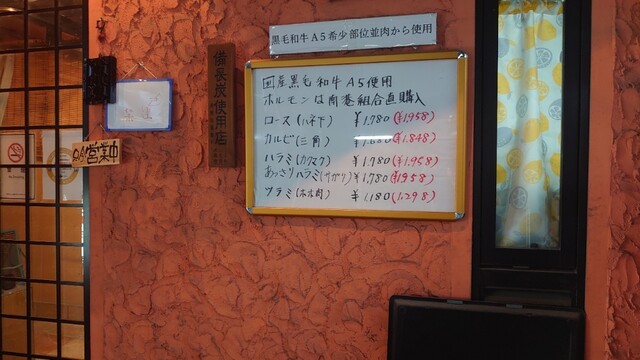 黒毛和牛A5希少部位並肉から使用
備長炭使用店
営業中
国産黒毛和牛A5使用
ホルモンは南港組合直購入
ロース(ハネ下) ¥1,780(¥1,958)
カルビ(三角) ¥1,680(¥1,848)
ハラミ(カクスク) ¥1,780(¥1,958)
あっさりハラミ(サガリ) ¥1,780(¥1958)
ツラミ(ホホ肉) ¥1,180(1,298)